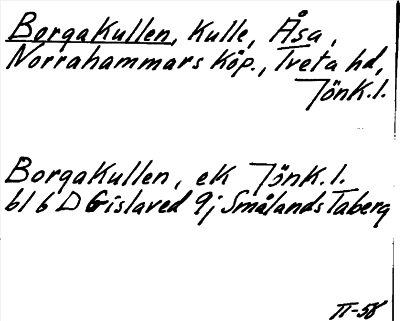 Borgakullen, kulle, Åsa,
Norrahammars köp., Tveta hd,
Jönk.l.
Borgakullen, ek Jönk.l.
bl 6 D Gislaved 9j Smålands Taberg
II-58